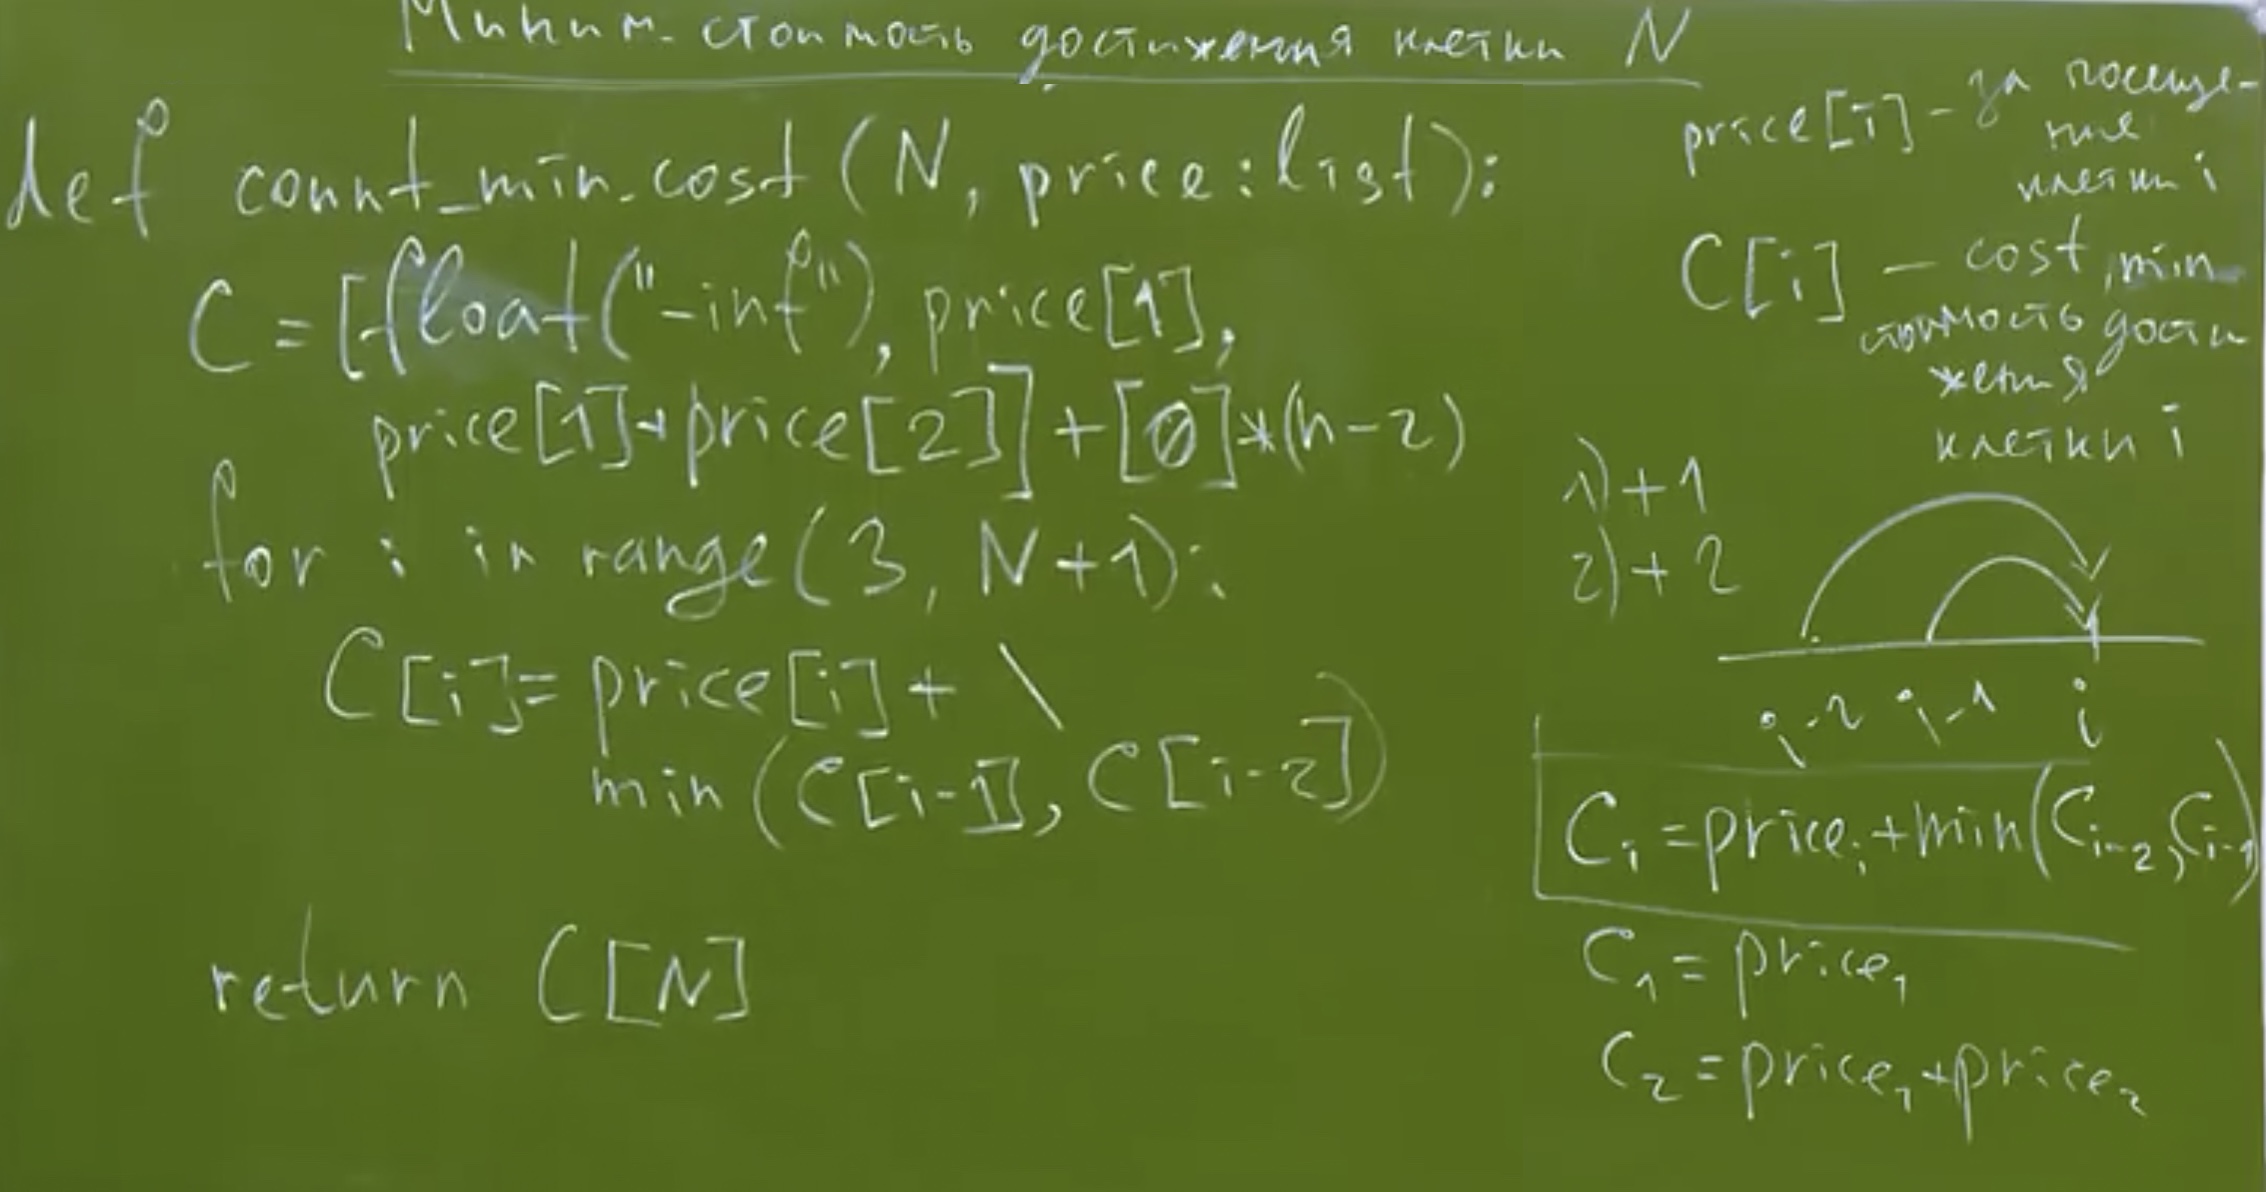 Миним. стоимость достижения клетки N
def count_min_cost (N, price:list):
C = [float("-inf"), price[1],
price[1]+price[2]] + [0]*(n-2)
for i in range(3, N+1):
C[i]= price[i] + \
min(C[i-1], C[i-2])
return C[N]
price[i] - за посеще-
ние
клетки i
C[i] - cost, min
стоимость дости
жения
клетки i
1) + 1
2) + 2
i-2 i-1 i
Cᵢ = priceᵢ + min(Cᵢ₋₂, Cᵢ₋₁)
C₁ = price₁
C₂ = price₁ + price₂